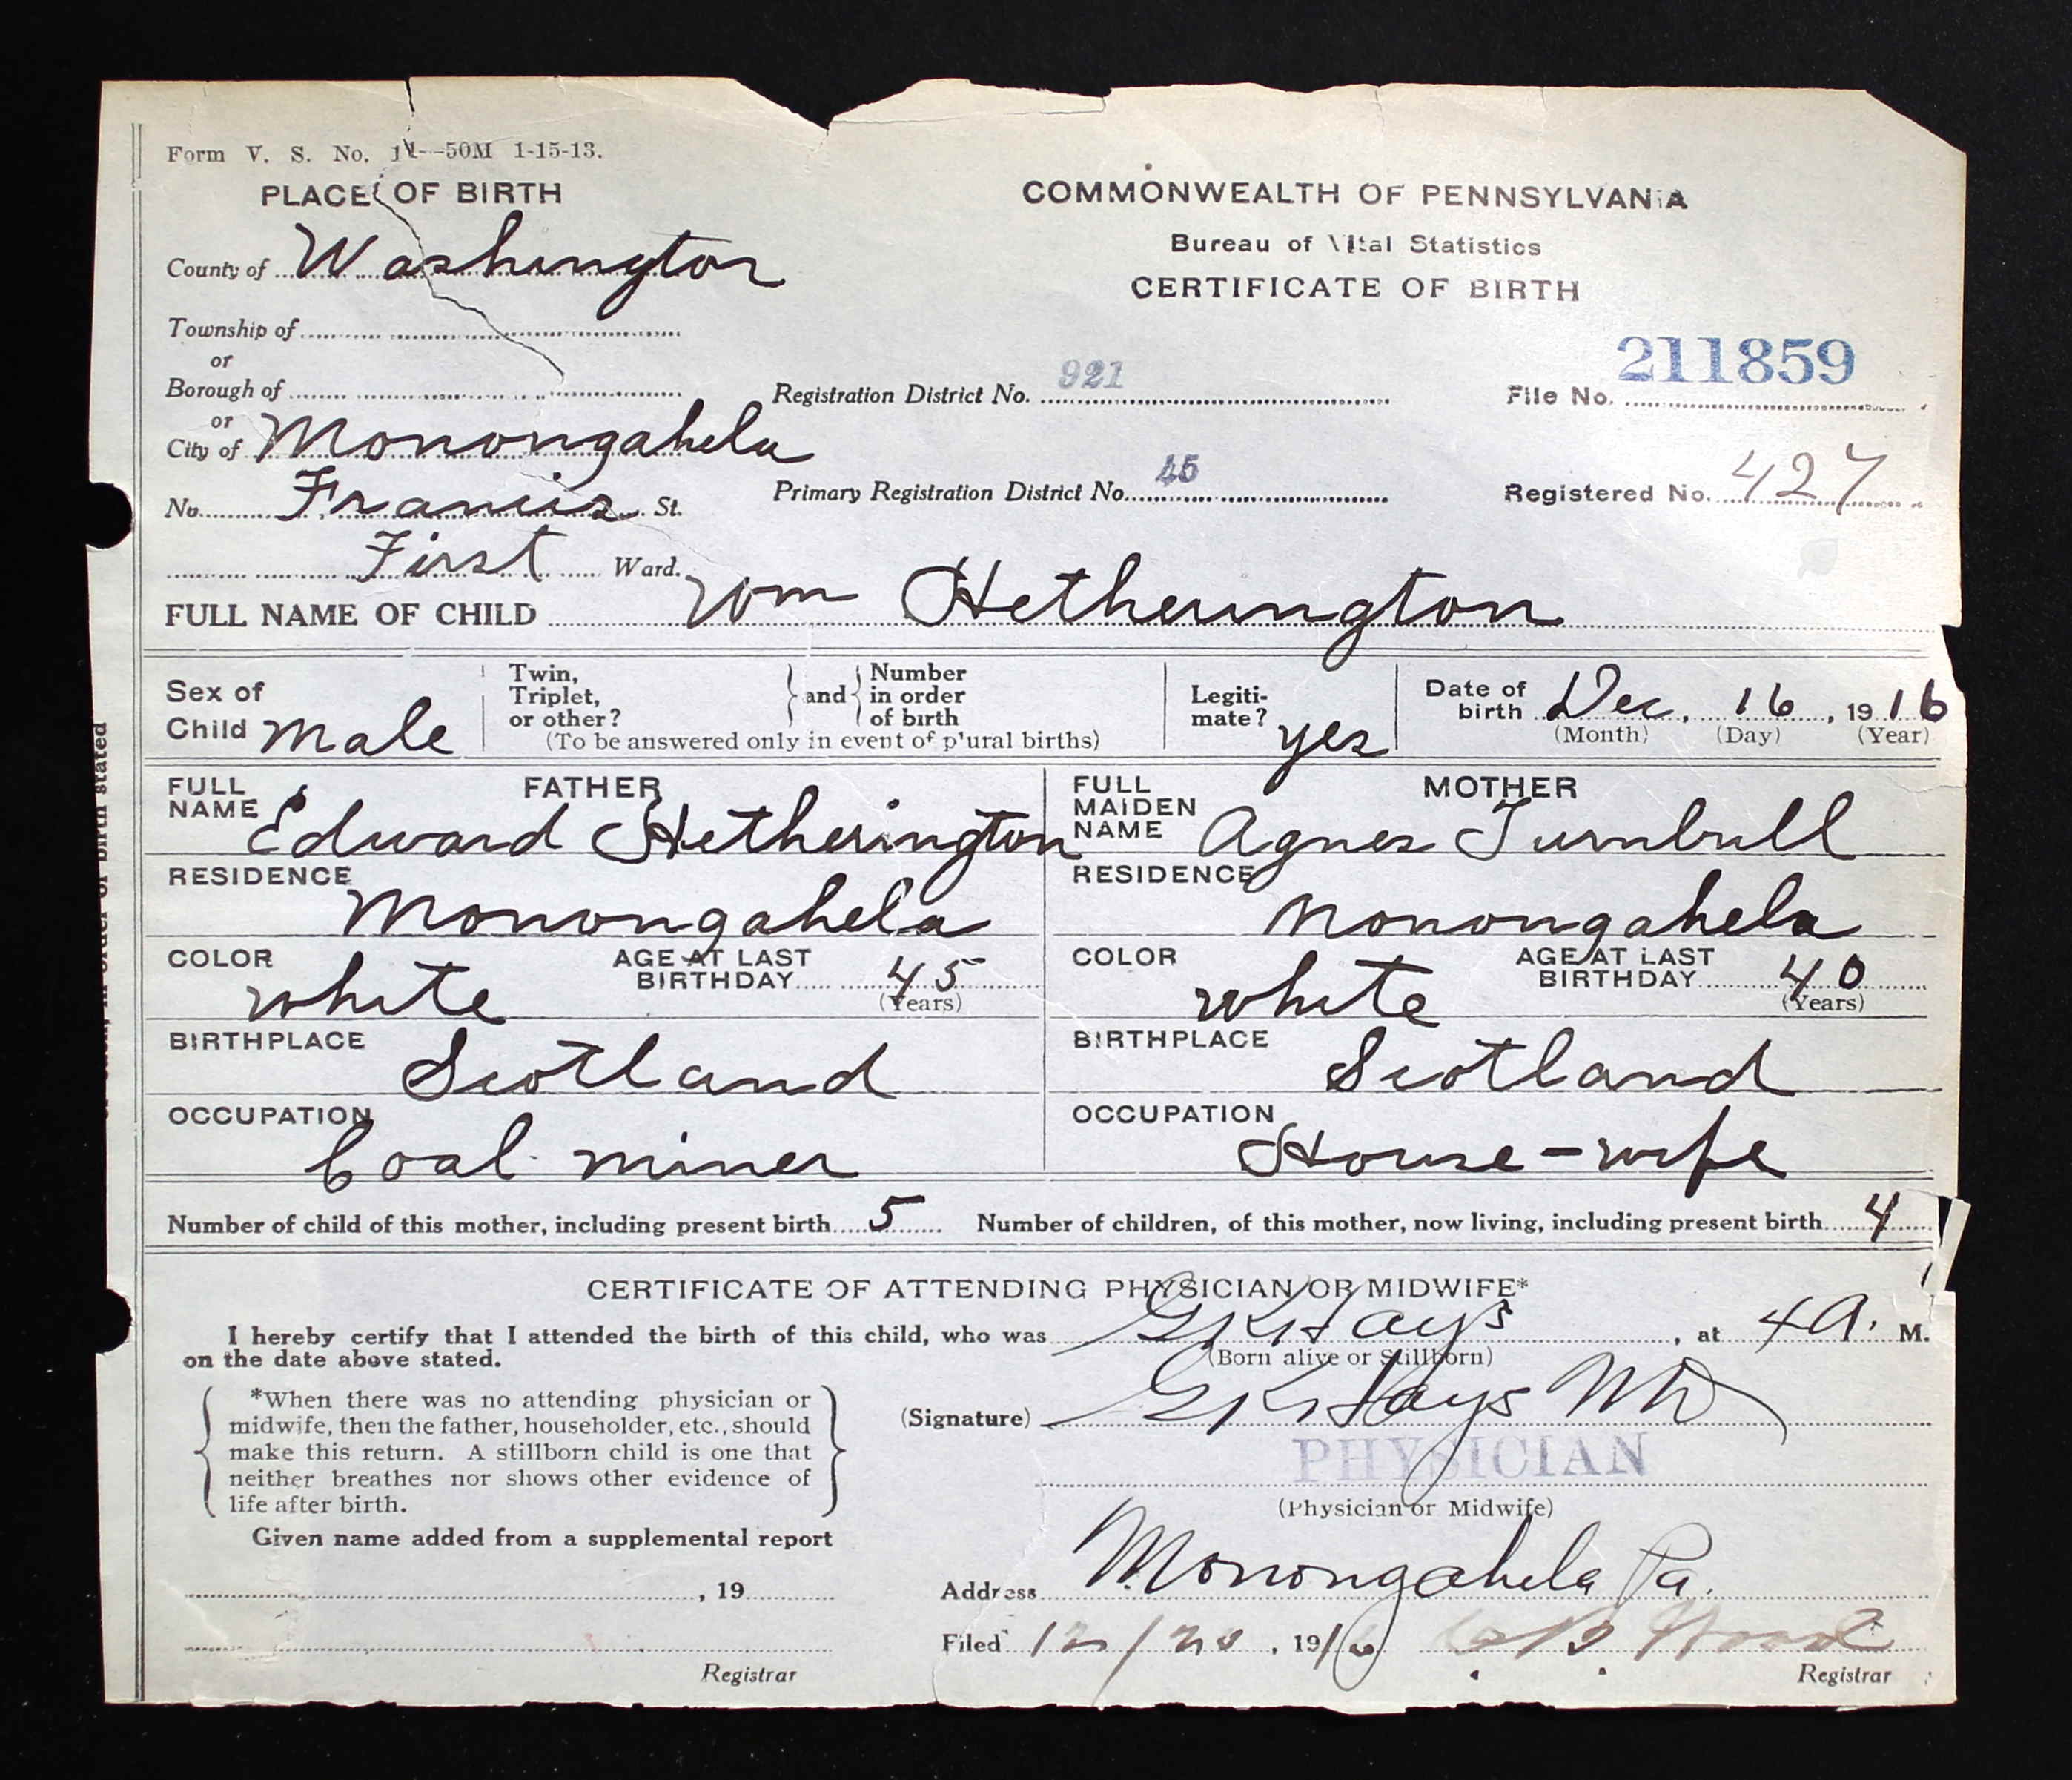 Form V. S. No. 11--50M 1-15-13.
PLACE OF BIRTH
County of Washington
Township of
or
Borough of
or
City of Monongahela
No. Francis St.
First Ward.
COMMONWEALTH OF PENNSYLVANIA
Bureau of Vital Statistics
CERTIFICATE OF BIRTH
Registration District No. 921
File No. 211859
Primary Registration District No. 45
Registered No. 427
FULL NAME OF CHILD Wm Hetherington
Sex of Child male
Twin, Triplet, or other? and Number in order of birth
(To be answered only in event of plural births)
Legitimate? yes
Date of birth Dec. 16, 1916
(Month) (Day) (Year)
FATHER
FULL NAME Edward Hetherington
RESIDENCE Monongahela
COLOR white AGE AT LAST BIRTHDAY 45
(Years)
BIRTHPLACE Scotland
OCCUPATION Coal miner
MOTHER
FULL MAIDEN NAME Agnes Turnbull
RESIDENCE Monongahela
COLOR white AGE AT LAST BIRTHDAY 40
(Years)
BIRTHPLACE Scotland
OCCUPATION House-wife
Number of child of this mother, including present birth 5 Number of children, of this mother, now living, including present birth 4
CERTIFICATE OF ATTENDING PHYSICIAN OR MIDWIFE*
I hereby certify that I attended the birth of this child, who was GKHays, at 4 A. M.
(Born alive or Stillborn)
on the date above stated.
*When there was no attending physician or
midwife, then the father, householder, etc., should
make this return. A stillborn child is one that
neither breathes nor shows other evidence of
life after birth.
(Signature) GKHays MD
PHYSICIAN
(Physician or Midwife)
Given name added from a supplemental report
, 19
Registrar
Address Monongahela Pa.
Filed 12/20, 1916 Wood
Registrar